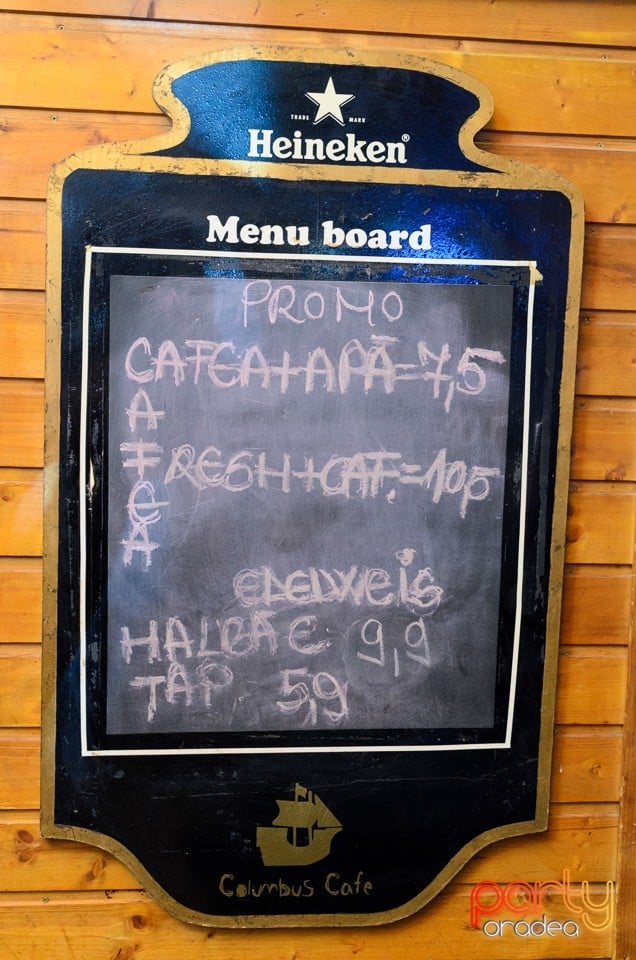 TRADE MARK
Heineken®
Menu board
PROMO
CAFEA+APĂ=7,5
CAFEA
FRESH+CAF.=10,5
EDELWEIS
HALBĂ E: 9,9
TAP 5,9
Columbus Cafe
party
oradea